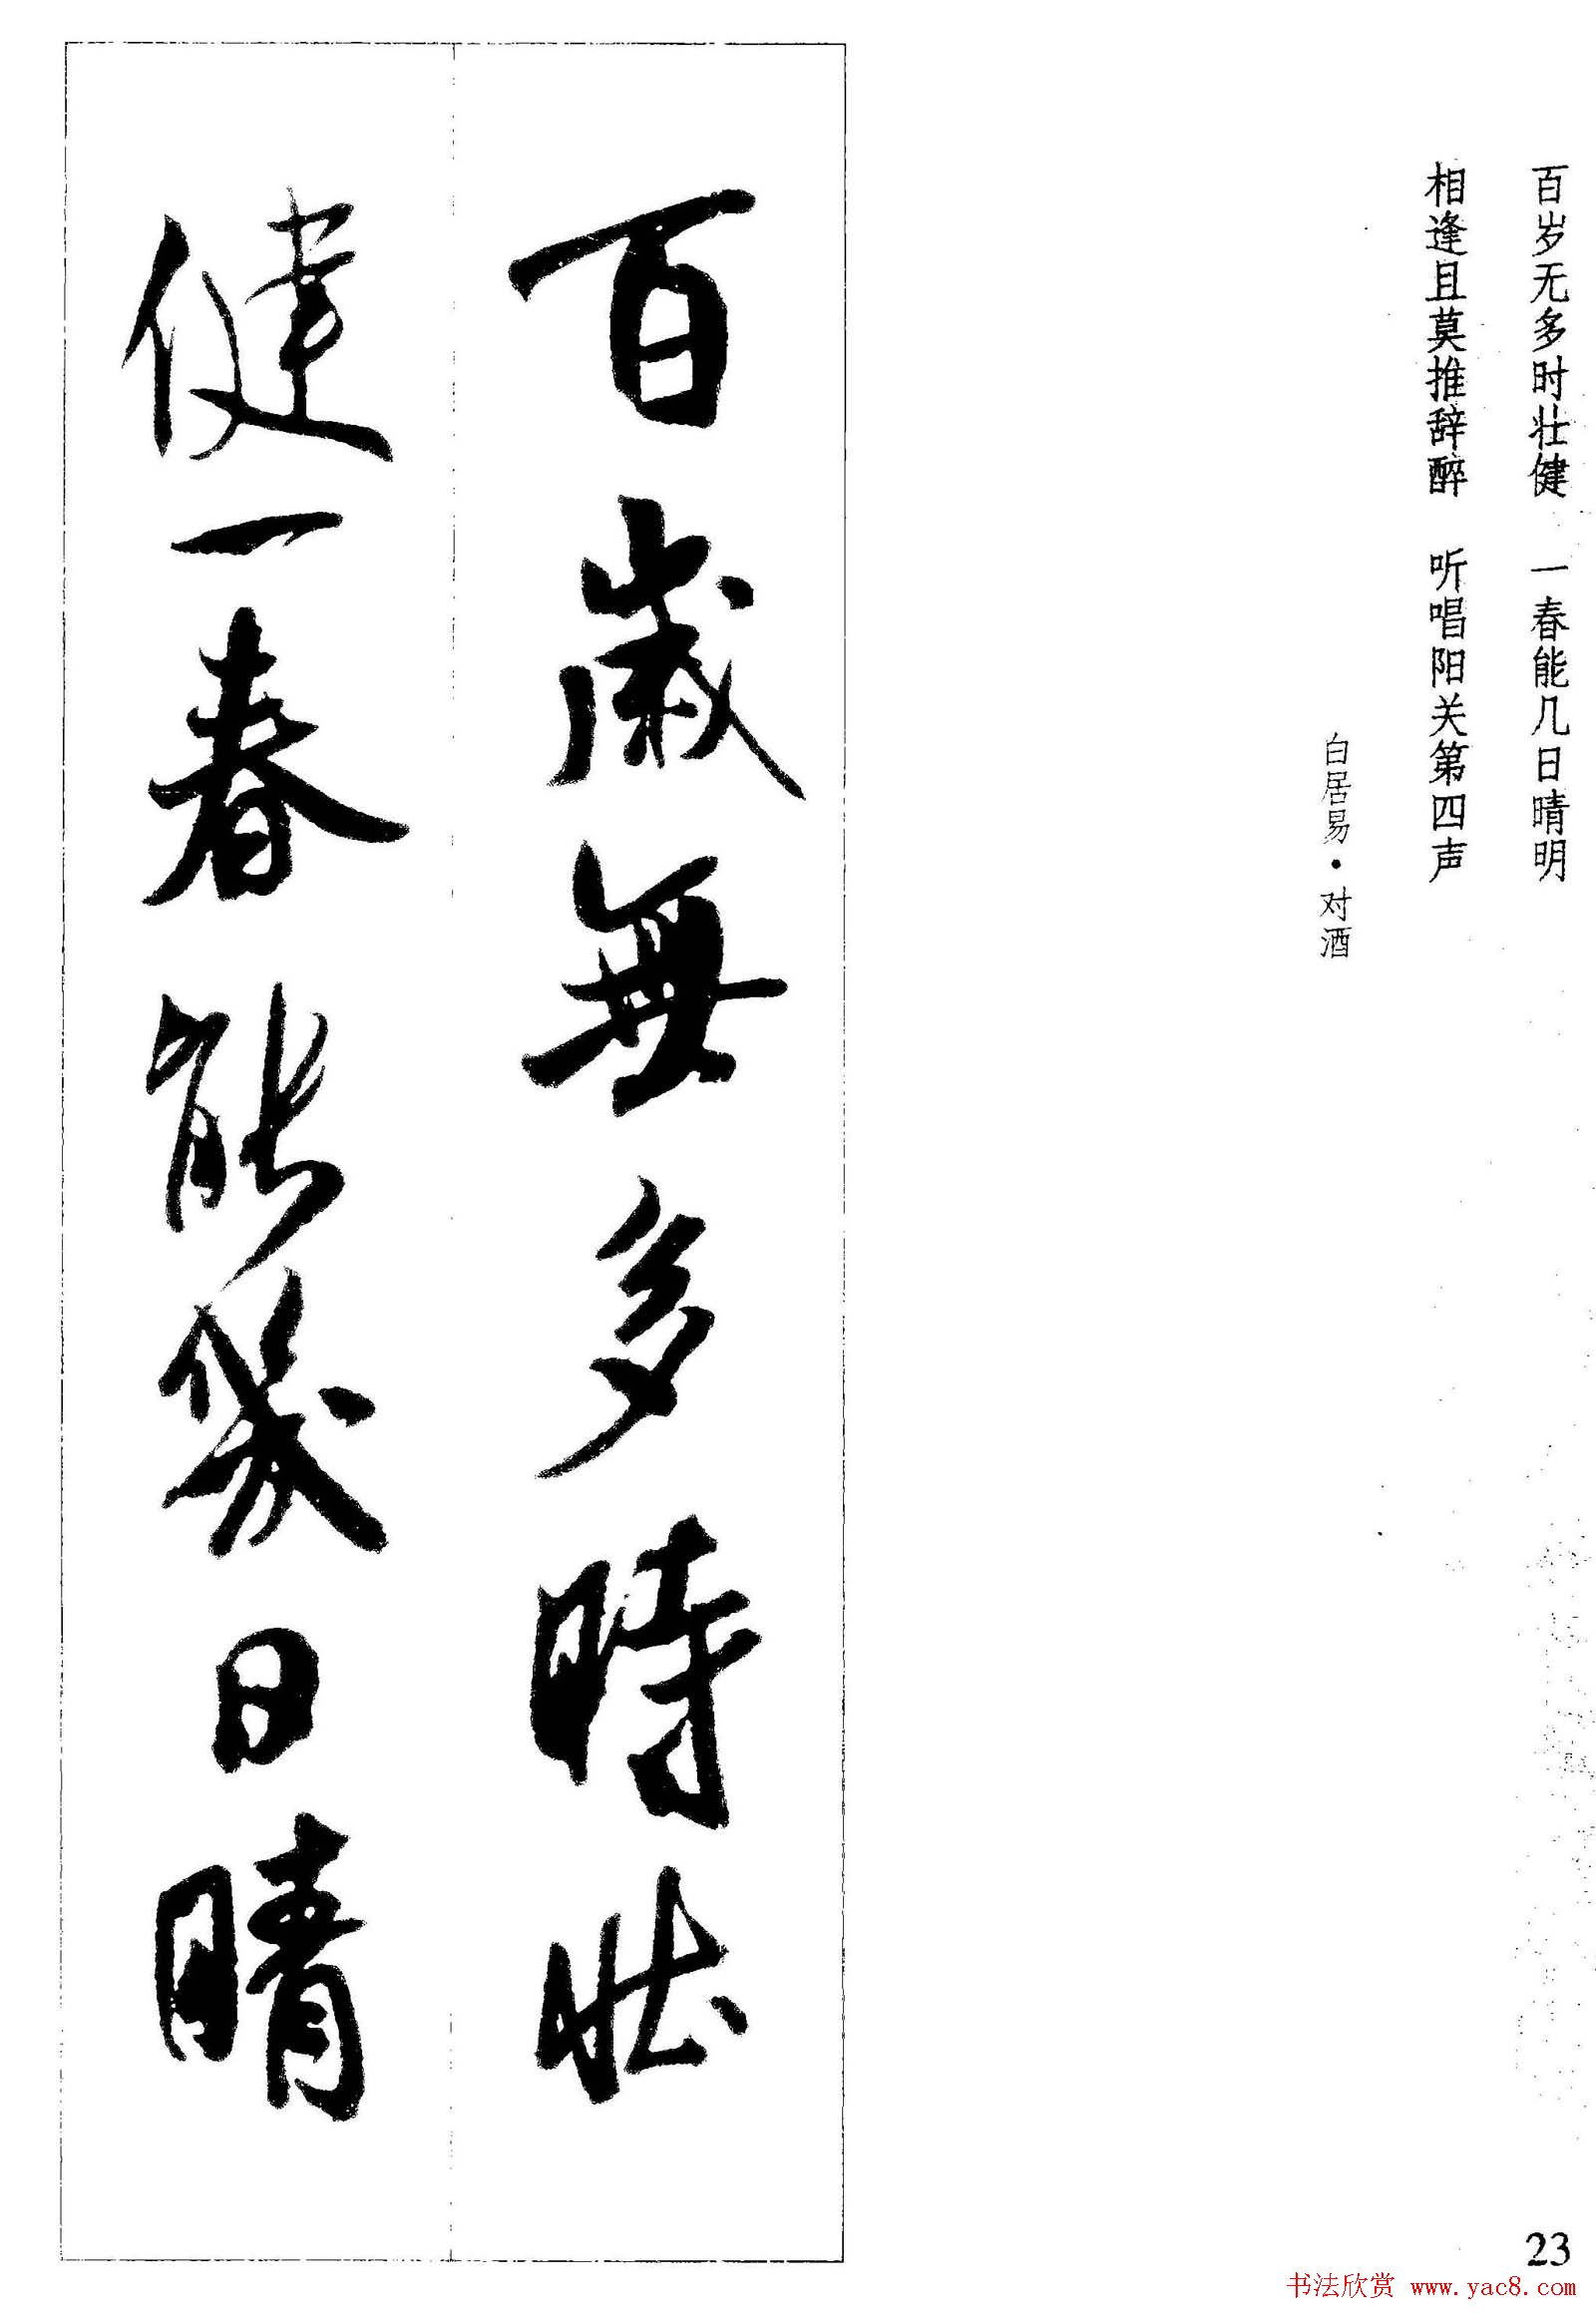 百岁无多时壮健 一春能几日晴明
相逢且莫推辞醉 听唱阳关第四声
白居易·对酒
百歲無多時壯
健一春能幾日晴
23
书法欣赏 www.yac8.com